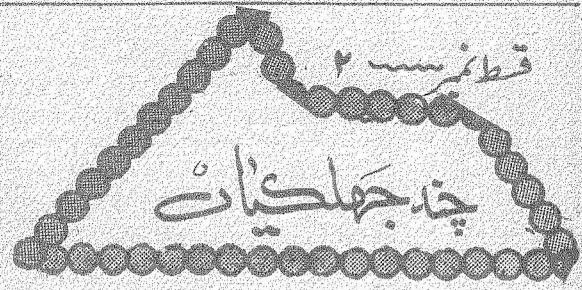 قسط نمبر ۲
چند جھلکیاں